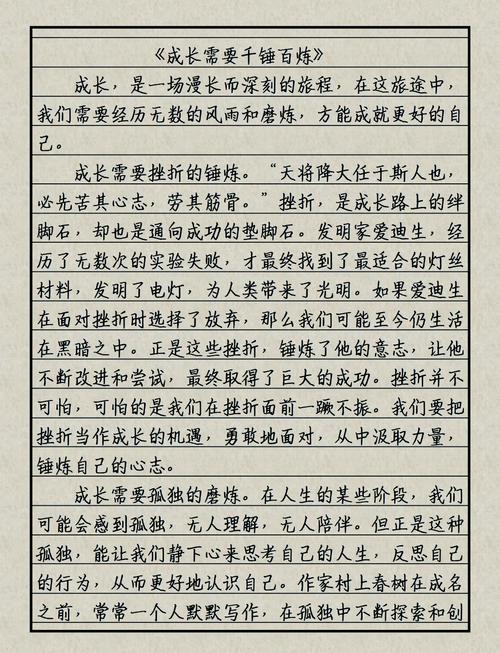 《成长需要千锤百炼》
成长，是一场漫长而深刻的旅程，在这旅途中，
我们需要经历无数的风雨和磨炼，方能成就更好的自
己。
成长需要挫折的锤炼。“天将降大任于斯人也，
必先苦其心志，劳其筋骨。”挫折，是成长路上的绊
脚石，却也是通向成功的垫脚石。发明家爱迪生，经
历了无数次的实验失败，才最终找到了最适合的灯丝
材料，发明了电灯，为人类带来了光明。如果爱迪生
在面对挫折时选择了放弃，那么我们可能至今仍生活
在黑暗之中。正是这些挫折，锤炼了他的意志，让他
不断改进和尝试，最终取得了巨大的成功。挫折并不
可怕，可怕的是我们在挫折面前一蹶不振。我们要把
挫折当作成长的机遇，勇敢地面对，从中汲取力量，
锤炼自己的心志。
成长需要孤独的磨炼。在人生的某些阶段，我们
可能会感到孤独，无人理解，无人陪伴。但正是这种
孤独，能让我们静下心来思考自己的人生，反思自己
的行为，从而更好地认识自己。作家村上春树在成名
之前，常常一个人默默写作，在孤独中不断探索和创